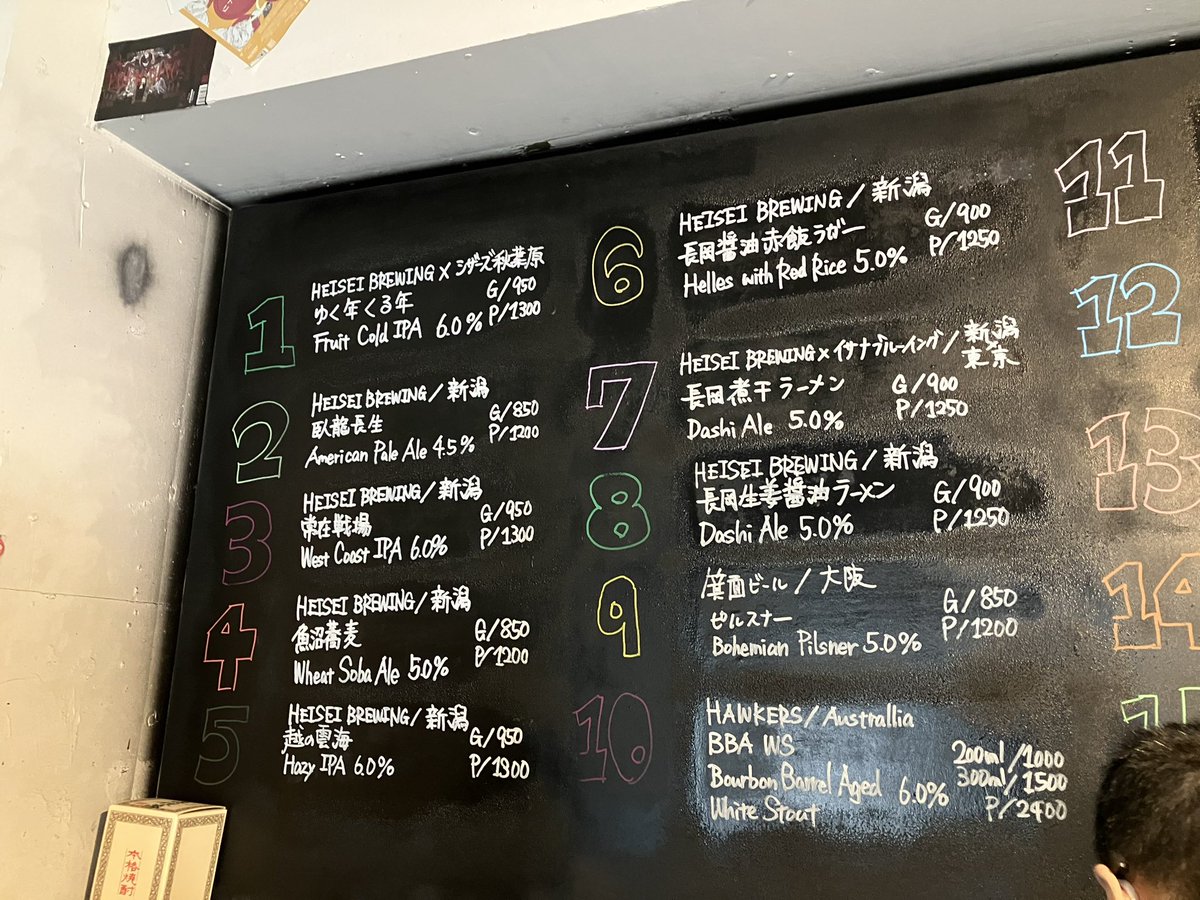 1
HEISEI BREWING × シザーズ秋葉原
ゆく年くる年
G/950
Fruit Cold IPA 6.0% P/1300
2
HEISEI BREWING/新潟
臥龍長生
G/850
American Pale Ale 4.5% P/1200
3
HEISEI BREWING/新潟
常在戦場
G/950
West Coast IPA 6.0% P/1300
4
HEISEI BREWING/新潟
魚沼蕎麦
G/850
Wheat Soba Ale 5.0% P/1200
5
HEISEI BREWING/新潟
越の雲海
G/950
Hazy IPA 6.0% P/1300
6
HEISEI BREWING/新潟
長岡醤油赤飯ラガー
G/900
Helles with Red Rice 5.0% P/1250
7
HEISEI BREWING × イサナブルーイング/新潟
東京
長岡煮干ラーメン G/900
Dashi Ale 5.0% P/1250
8
HEISEI BREWING/新潟
長岡生姜醤油ラーメン G/900
Dashi Ale 5.0% P/1250
9
箕面ビール/大阪
ピルスナー G/850
Bohemian Pilsner 5.0% P/1200
10
HAWKERS/Australlia
BBA WS 200ml/1000
Bourbon Barrel Aged 6.0% 300ml/1500
White Stout P/2400
11
12
13
14
本格焼酎